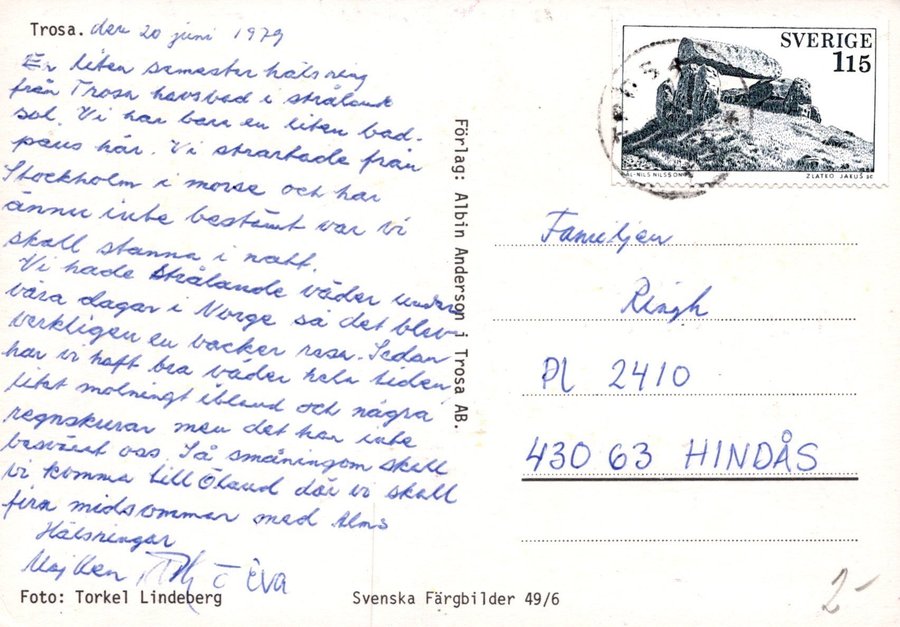 Trosa. den 20 juni 1979
En liten semester hälsning
från Trosa havsbad i strålande
sol. Vi har bara en liten bad-
paus här. Vi startade från
Stockholm i morse och har
ännu inte bestämt var vi
skall stanna i natt.
Vi hade strålande väder under
våra dagar i Norge så det blev
verkligen en vacker resa. Sedan
har vi haft bra väder hela tiden
likt molnigt ibland och några
regnskurar men det har inte
besvärat oss. Så småningom skall
vi komma till Öland där vi skall
fira midsommar med Alms
Hälsningar
Majken Eva
Foto: Torkel Lindeberg
Svenska Färgbilder 49/6
Förlag: Albin Anderson i Trosa AB.
SVERIGE
115
AL-NILS NILSSON
ZLATKO JAKUS SC
Familjen
Ringh
Pl 2410
430 63 HINDÅS
2-